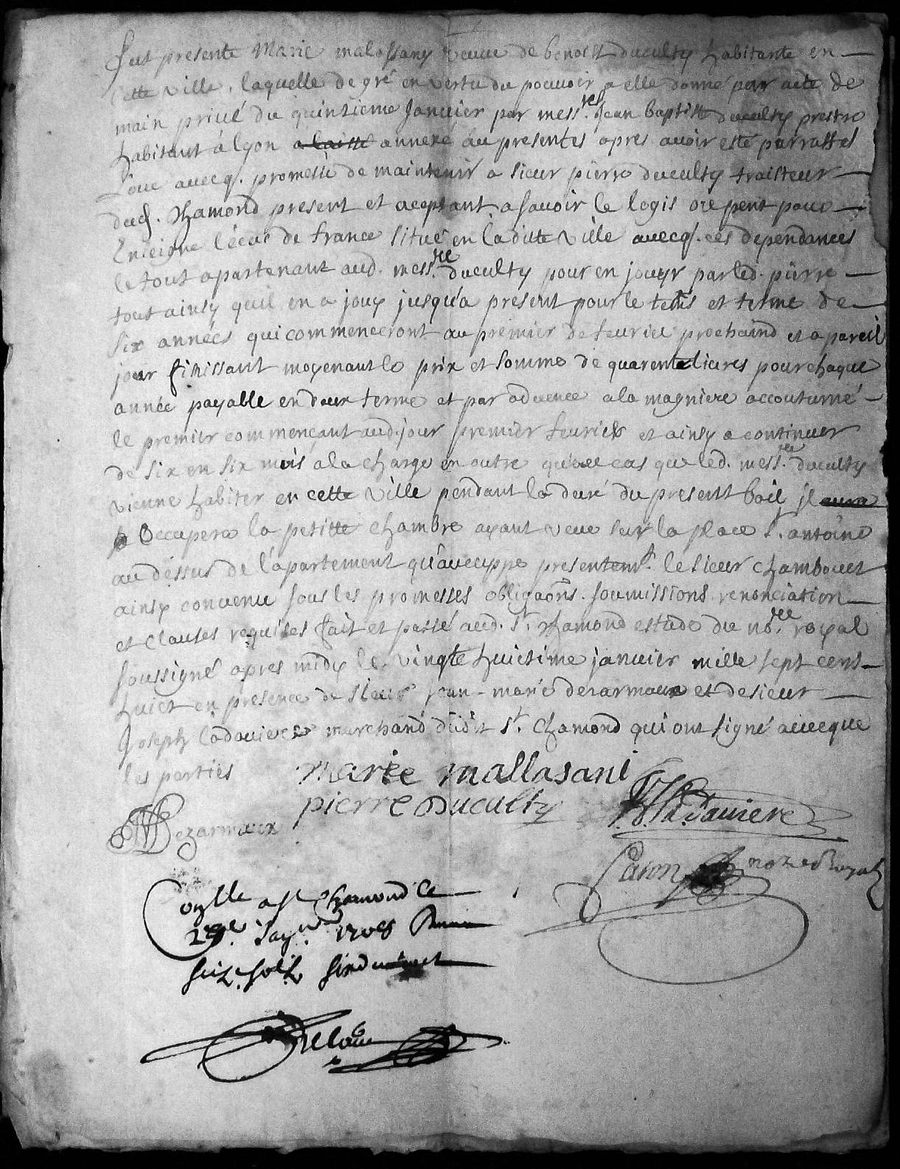 fut presente Marie malossany veuve de benoist duculty habitante en
cette ville, laquelle de gré en vertu du pouvoir a elle donné par acte de
main privé du quinzieme Janvier par mess.re Jean baptiste duculty prestre
habitant à lyon a laissé annexé au presentes apres avoir esté parraffés
Loue avecq. promesse de maintenir a sieur pierre duculty traitteur
dud. Chamond present et aceptant asavoir le logis ou pent pour
Enseigne l'écu de france situé en ladite ville avecq. ces dependances
le tout apartenant aud. mess.re duculty pour en jouyr par led. pierre
tout ainsy quil en a jouy jusqu'a present pour le tems et terme de
six années qui commenceront au premier de feurier prochain et a pareil
jour finissant moyenant le prix et somme de quarente livres pour chaque
année payable en deux terme et par advence a la magniere accoutumé
le premier commencant aud. jour premier feurier et ainsy a continuer
de six en six mois a la charge en outre qu'au cas que led. mess.re duculty
vienne habiter en cette ville pendant la duré du present bail jl aura
occupera la petitte chambre ayant veue sur la place st. antoine
au dessus de l'apartement qu'auccuppe presentemt. le sieur chambouet
ainsy convenu sous les promesses obligaons. soumissions renonciation
et clauses requises fait et passé aud. st. chamond estude du nore. royal
soussigné apres midy le vingt huictieme janvier mille sept cens
huict en presence de sieur Jean-marie dezarmaux et de sieur
Joseph ladaviere marchand dudit st. Chamond qui ont signé avecque
les parties
marie mallasani
pierre duculty
Dezarmaux
Daviere
notre Royal
Conlle a st chamond le
28e. Janr. 1708
seiz solz